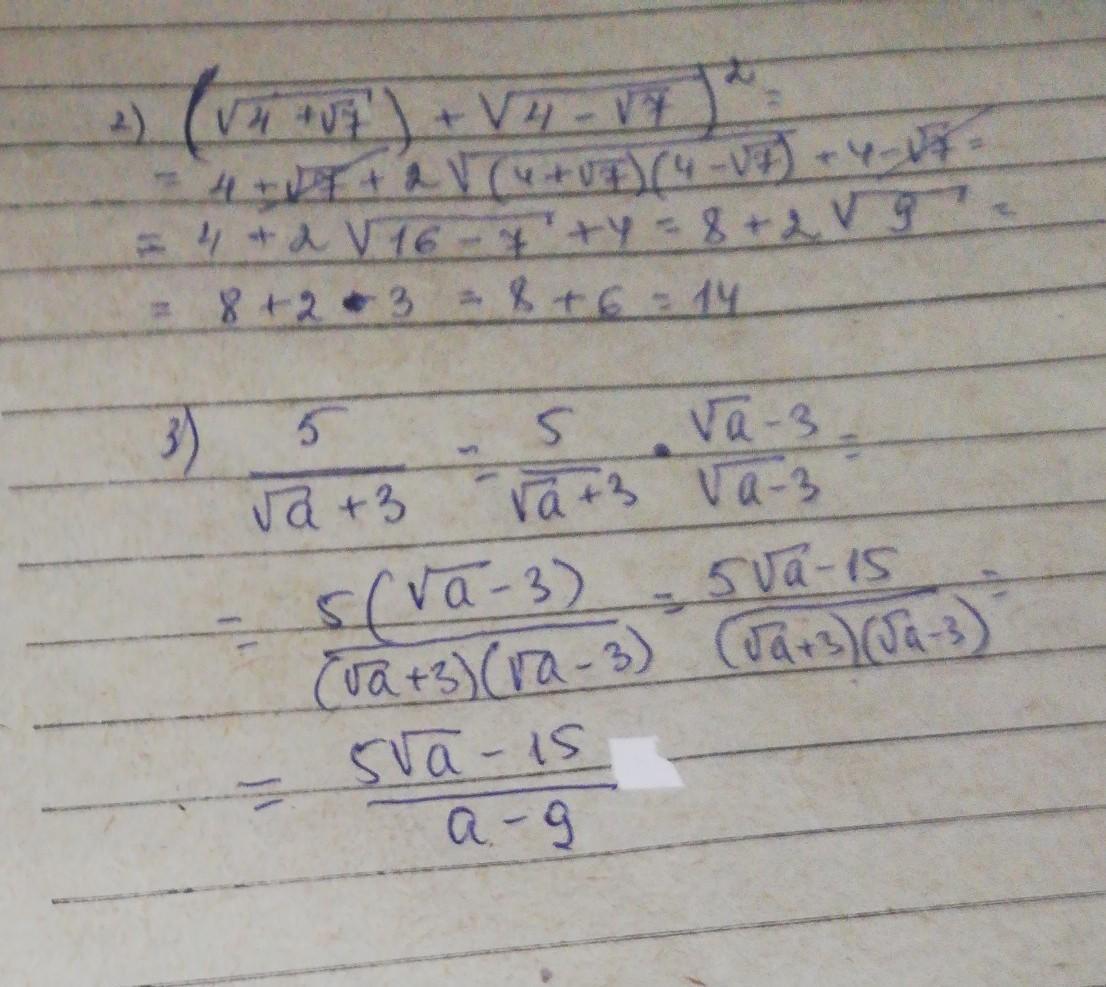 2) (√(4+√7)) + √(4-√7))² =
= 4+√7 + 2√((4+√7)(4-√7)) + 4-√7 =
= 4 + 2√(16-7) + 4 = 8 + 2√9 =
= 8 + 2 • 3 = 8 + 6 = 14
3) 5/(√a + 3) = 5/(√a + 3) • (√a - 3)/(√a - 3) =
= 5(√a - 3)/((√a+3)(√a-3)) = (5√a - 15)/((√a+3)(√a-3)) =
= (5√a - 15)/(a - 9)